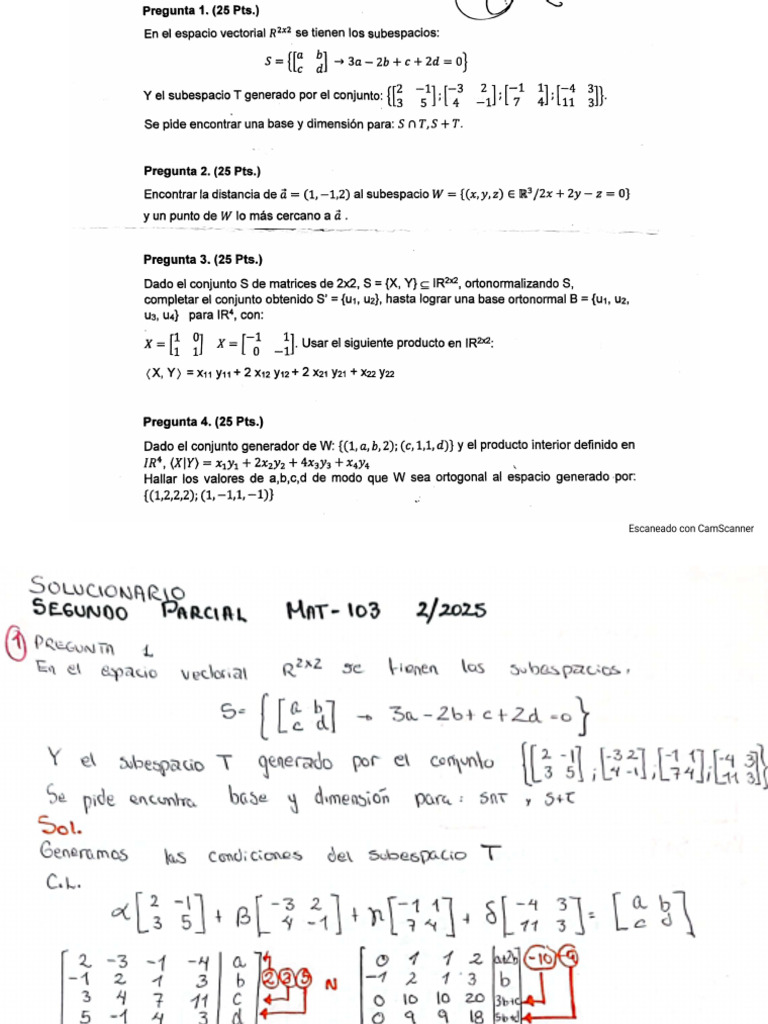 Pregunta 1. (25 Pts.)
En el espacio vectorial R²ˣ² se tienen los subespacios:
S = {[a b; c d] → 3a − 2b + c + 2d = 0}
Y el subespacio T generado por el conjunto: {[2 −1; 3 5]; [−3 2; 4 −1]; [−1 1; 7 4]; [−4 3; 11 3]}.
Se pide encontrar una base y dimensión para: S ∩ T, S + T.
Pregunta 2. (25 Pts.)
Encontrar la distancia de a⃗ = (1, −1,2) al subespacio W = {(x, y, z) ∈ ℝ³/2x + 2y − z = 0}
y un punto de W lo más cercano a a⃗ .
Pregunta 3. (25 Pts.)
Dado el conjunto S de matrices de 2x2, S = {X, Y} ⊆ IR²ˣ², ortonormalizando S,
completar el conjunto obtenido S' = {u₁, u₂}, hasta lograr una base ortonormal B = {u₁, u₂,
u₃, u₄} para IR⁴, con:
X = [1 0; 1 1] X = [−1 1; 0 −1]. Usar el siguiente producto en IR²ˣ²:
⟨X, Y⟩ = x₁₁ y₁₁ + 2 x₁₂ y₁₂ + 2 x₂₁ y₂₁ + x₂₂ y₂₂
Pregunta 4. (25 Pts.)
Dado el conjunto generador de W: {(1, a, b, 2); (c, 1,1, d)} y el producto interior definido en
IR⁴, ⟨X|Y⟩ = x₁y₁ + 2x₂y₂ + 4x₃y₃ + x₄y₄
Hallar los valores de a,b,c,d de modo que W sea ortogonal al espacio generado por:
{(1,2,2,2); (1, −1,1, −1)}
Escaneado con CamScanner
SOLUCIONARIO
SEGUNDO PARCIAL MAT-103 2/2025
1 PREGUNTA 1
En el espacio vectorial R²ˣ² se tienen los subespacios.
S= {[a b; c d] → 3a-2b+c+2d=0}
Y el subespacio T generado por el conjunto {[2 -1; 3 5]; [-3 2; 4 -1]; [-1 1; 7 4]; [-4 3; 11 3]}
Se pide encontra base y dimensión para: S∩T y S+T
Sol.
Generamos las condiciones del subespacio T
C.L.
α[2 -1; 3 5] + β[-3 2; 4 -1] + η[-1 1; 7 4] + δ[-4 3; 11 3] = [a b; c d]
2 -3 -1 -4 | a 0 1 1 2 | a+2b -10 -9
-1 2 1 3 | b 2 3 5 N -1 2 1 3 | b
3 4 7 11 | c 0 10 10 20 | 3b+c
5 -1 4 3 | d 0 9 9 18 | 5b+d